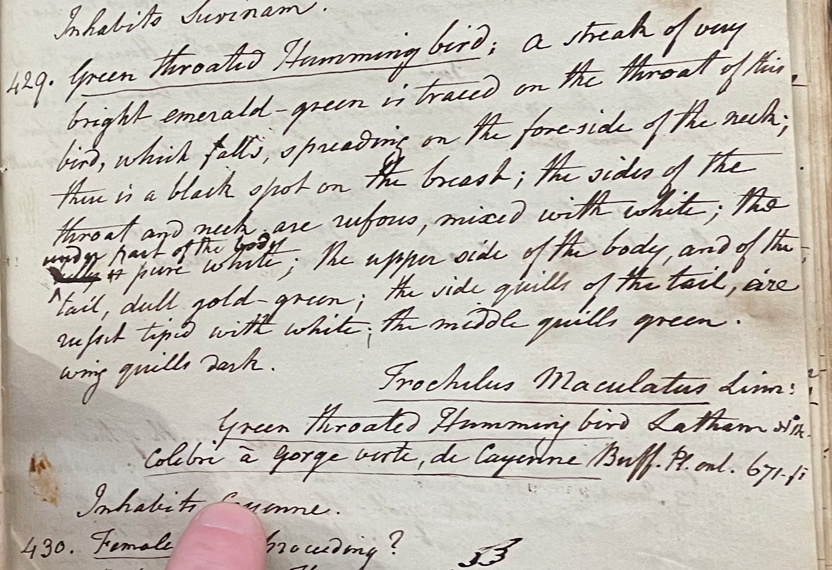 Inhabits Surinam.
429. Green throated Humming bird; a streak of very
bright emerald-green is traced on the throat of this
bird, which falls, spreading on the fore-side of the neck;
there is a black spot on the breast; the sides of the
throat and neck are rufous, mixed with white; the
under part of the body
pure white; the upper side of the body, and of the
tail, dull gold-green; the side quills of the tail, are
russet tiped with white; the middle quills green.
wing quills dark.
Trochilus Maculatus Linn:
Green throated Humming bird Latham
Colibri à Gorge verte, de Cayenne Buff. Pl. enl. 671.
Inhabits Cayenne.
430. Female preceeding?
53